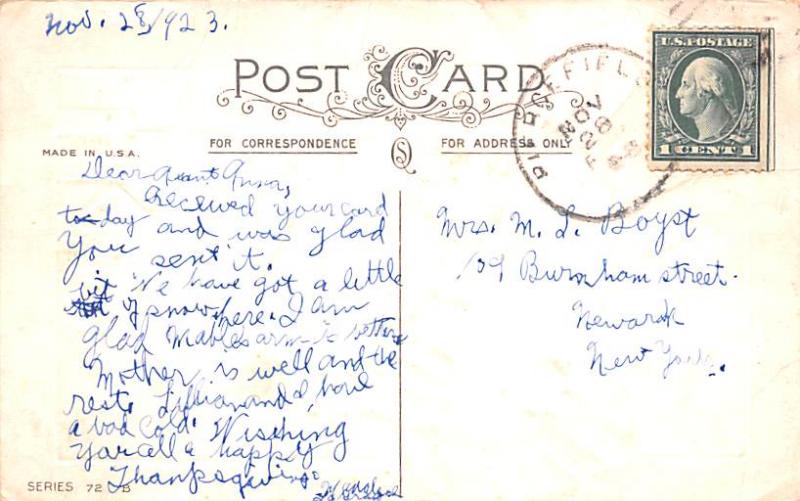 Nov. 28/1923.
U.S. POSTAGE
1 CENT 1
NOV 28
POST CARD
FOR CORRESPONDENCE
FOR ADDRESS ONLY
MADE IN U.S.A.
Dear Aunt Anna,
Received your card
to-day and was glad
you sent it.
We have got a little
bit of snow here. I am
glad Mables arm is better
Mother is well and the
rest. Lillian and I, have
a bad cold. Wisching
you all a happy
Thanksgiving.
SERIES 72 B
Mrs. M. L. Boyst
109 Burnham street.
Newark
New York.